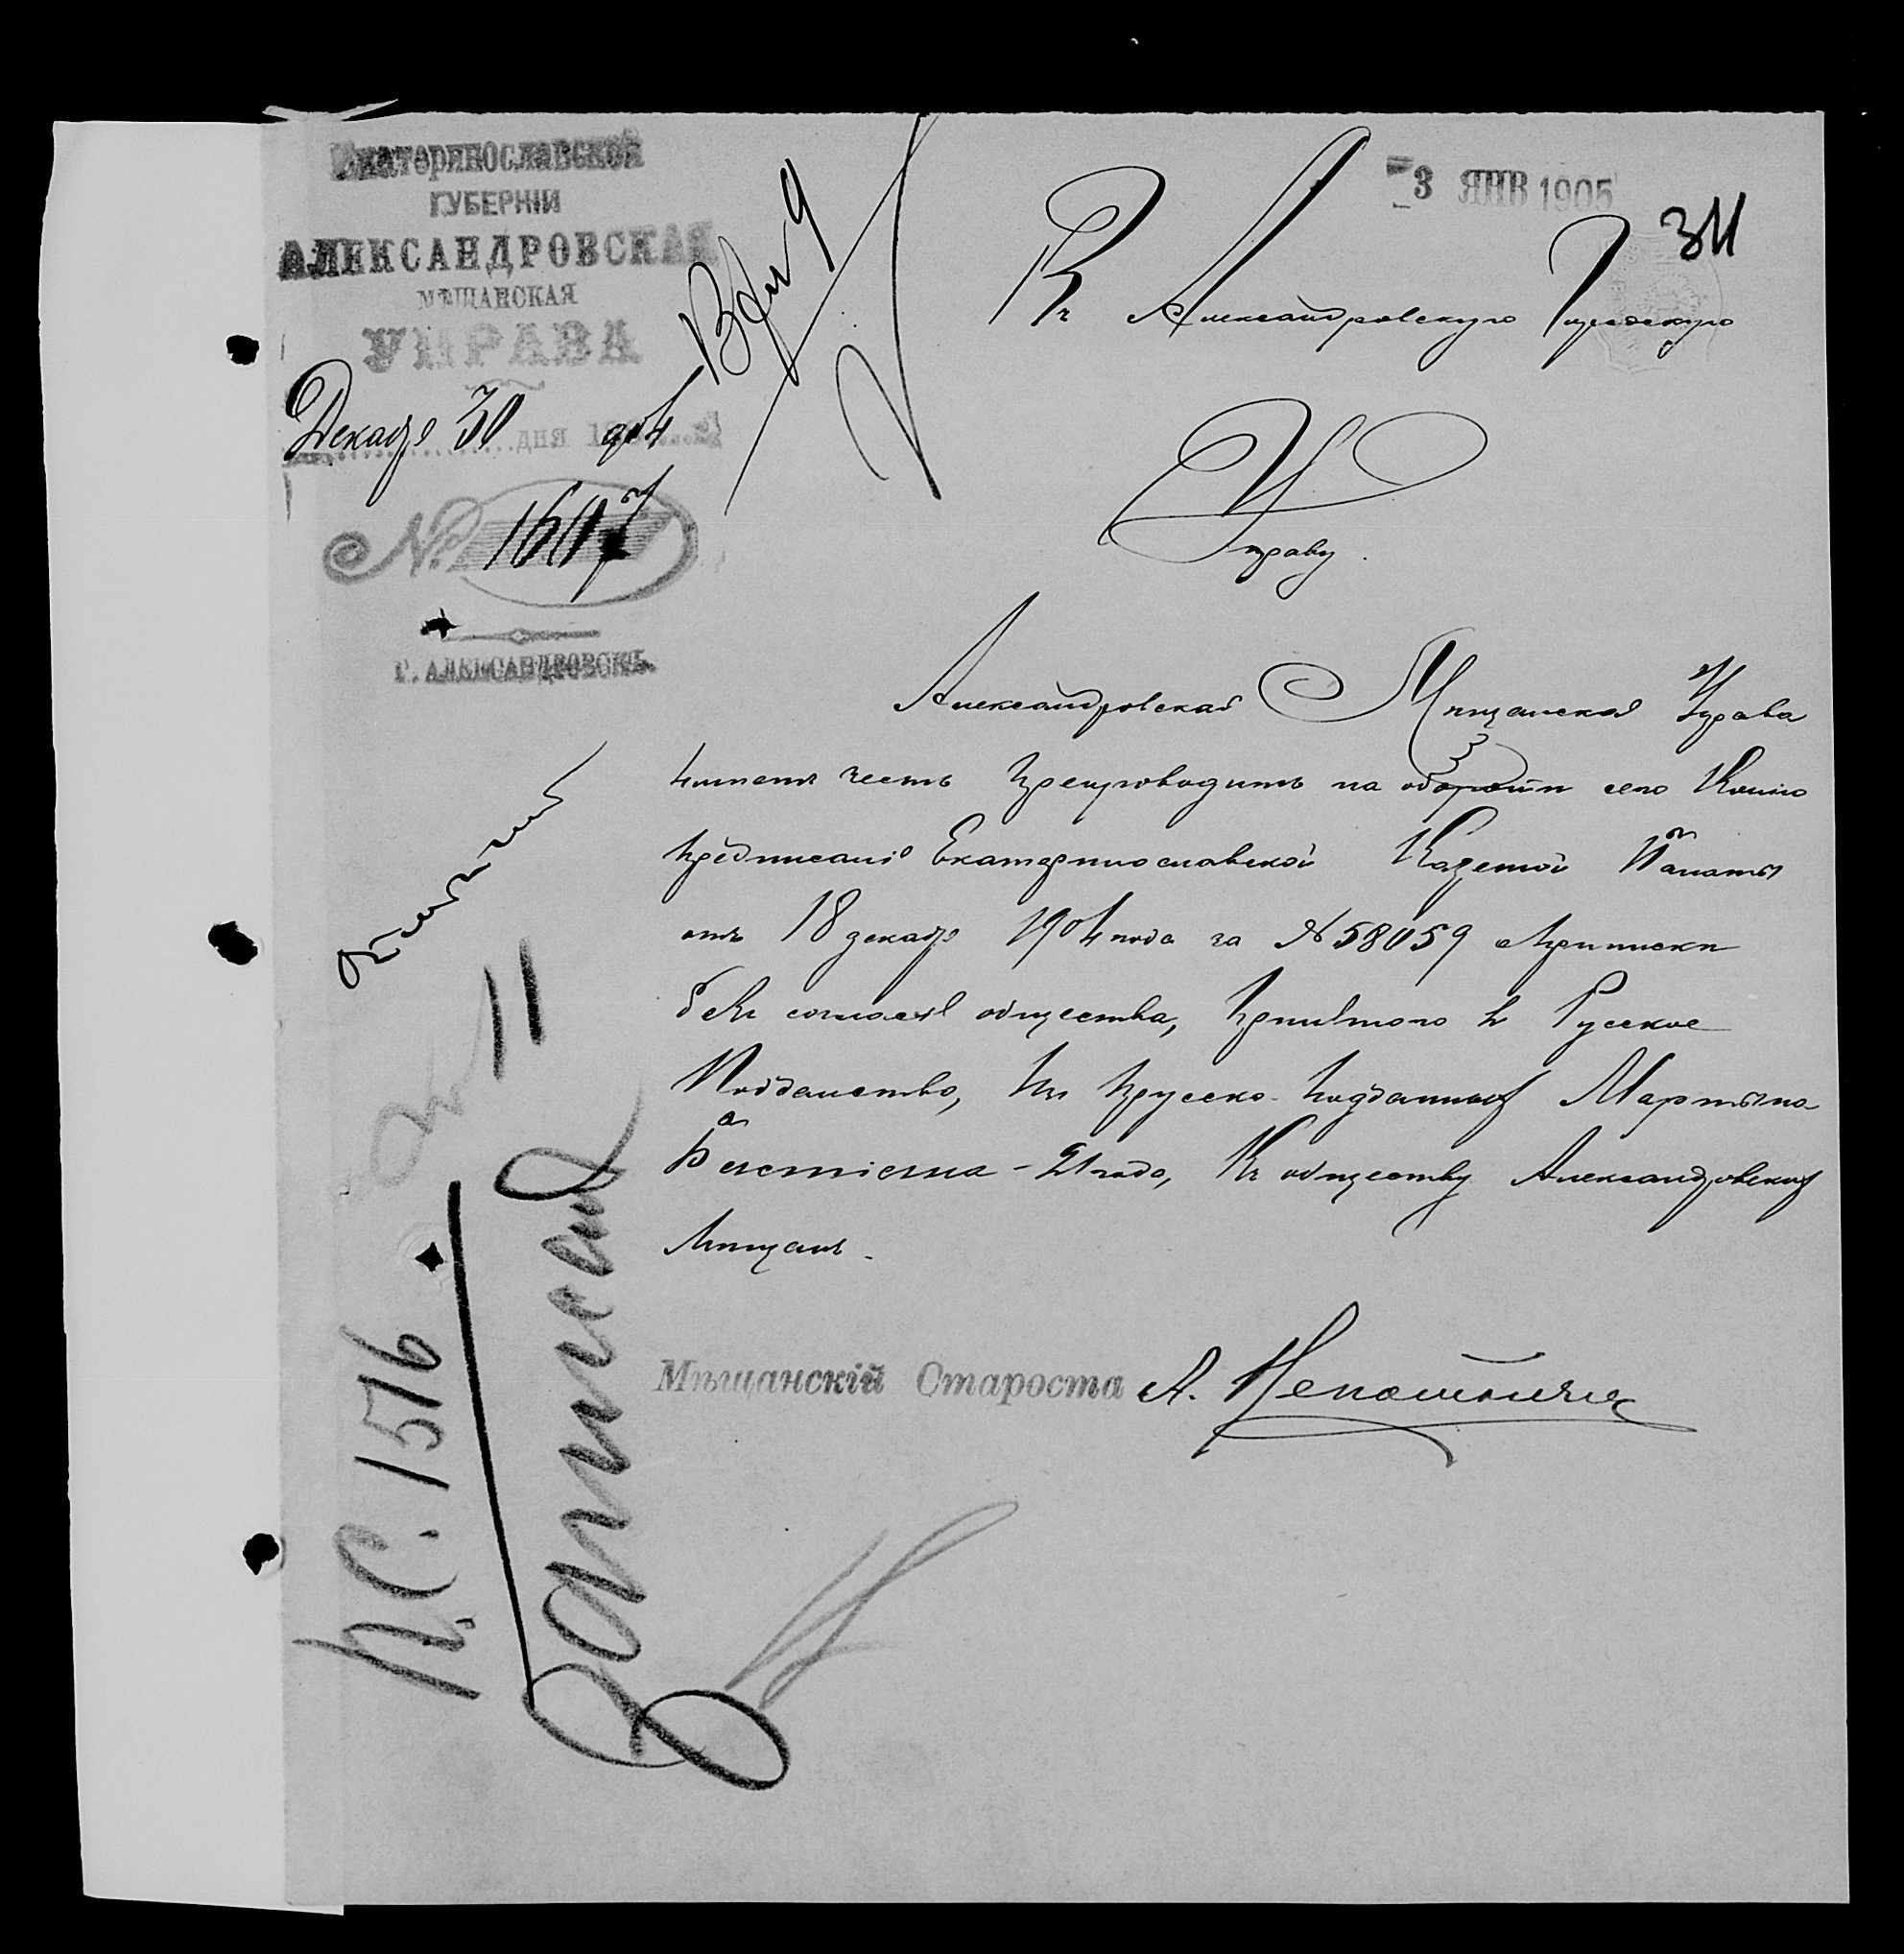 Екатеринославской
ГУБЕРНІИ
АЛЕКСАНДРОВСКАЯ
МѢЩАНСКАЯ
УПРАВА
Декабря 30 дня 1904
№ 1607
Г. АЛЕКСАНДРОВСКЪ.
3 ЯНВ 1905
Въ Александровскую Городскую
Управу.
Александровская Мѣщанская Управа
имѣетъ честь препроводить на оборотѣ сего копію
предписанія Екатеринославской Казенной Палаты
отъ 18 декабря 1904 года за № 58059 о припискѣ
безъ согласія общества, принятого въ Русское
Подданство, изъ прусско-подданныхъ Мартына
21 года, къ обществу Александровскихъ
Мѣщанъ.
Мѣщанскій Староста А.
Н.С. 1576